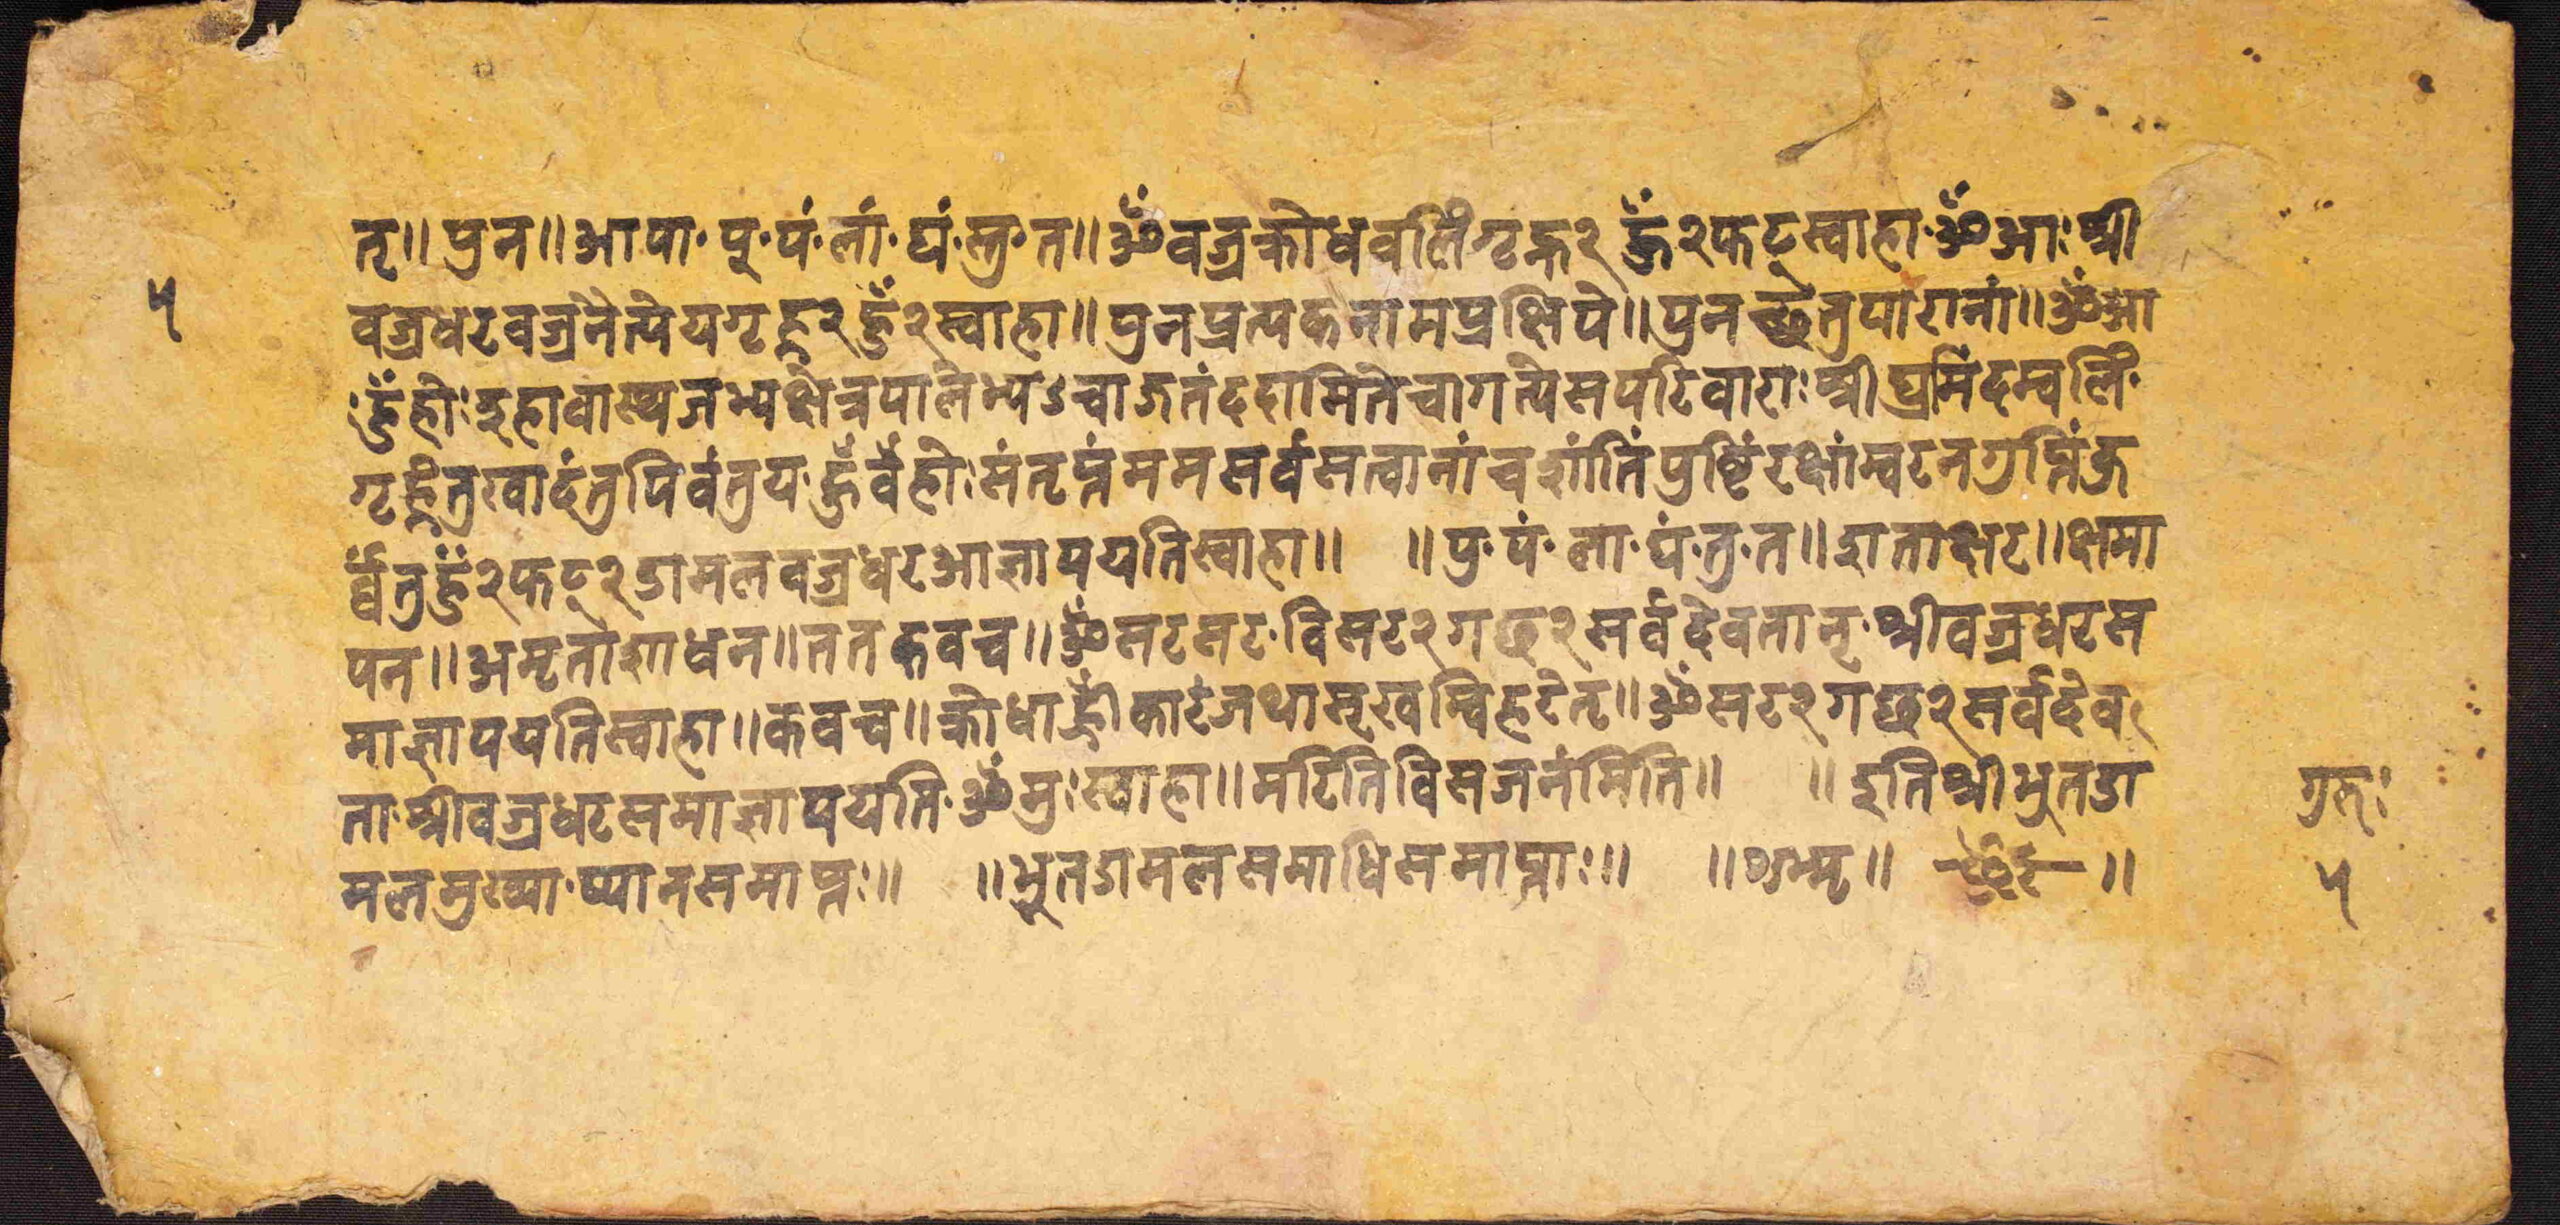 तृ॥ पुन॥ आपा· पू· पं· लां· घं· स्तु· त॥ ॐ वज्रक्रोधवलिं गृह्न२ हूँ२ फट् स्वाहा· ॐ आः श्री
५
वज्रधरवज्रनैत्येय गृह्ण२ हुँ२ स्वाहा॥ पुन प्रत्यकनाम प्रक्षिपे॥ पुन पारानां॥ ॐ आ
ः हुँ होः इहावास्थ्यजभ्यक्षेत्रपालेभ्य ददामि ते चागत्ये सपरिवाराः श्रीघ्रमिंदम्वलिं·
गृह्णंतु खादंतु पिवंतु य· हूँ वँ होः संतृप्तं मम सर्वसत्वानां च शांतिं पुष्टिं रक्षां
हुँ२ फट्२ डामलवज्रधर आज्ञापयति स्वाहा॥ ॥ पु· पं· ला· घं· तु· त॥ शताक्षर॥ क्षमा
पन॥ अमृताशाधन॥ तत कवच॥ ॐ सर सर· विसर२ गछ२ सर्वदेवतानृ· श्रीवज्रधरस
माज्ञापयति स्वाहा॥ कवच॥ जथासूखम्विहरेतृ॥ ॐ सर२ गछ२ सर्वदेव
ता· श्रीवज्रधरसमाज्ञापयति· ॐ मुः स्वाहा॥ मटिति विसजनंमिति॥ ॥ इति श्रीभुतडा
गुरुः
मलमुख्या· ध्यान समाप्तः॥ ॥ भुतडामलसमाधि समाप्ताः॥ ॥ ॥ ॥
५